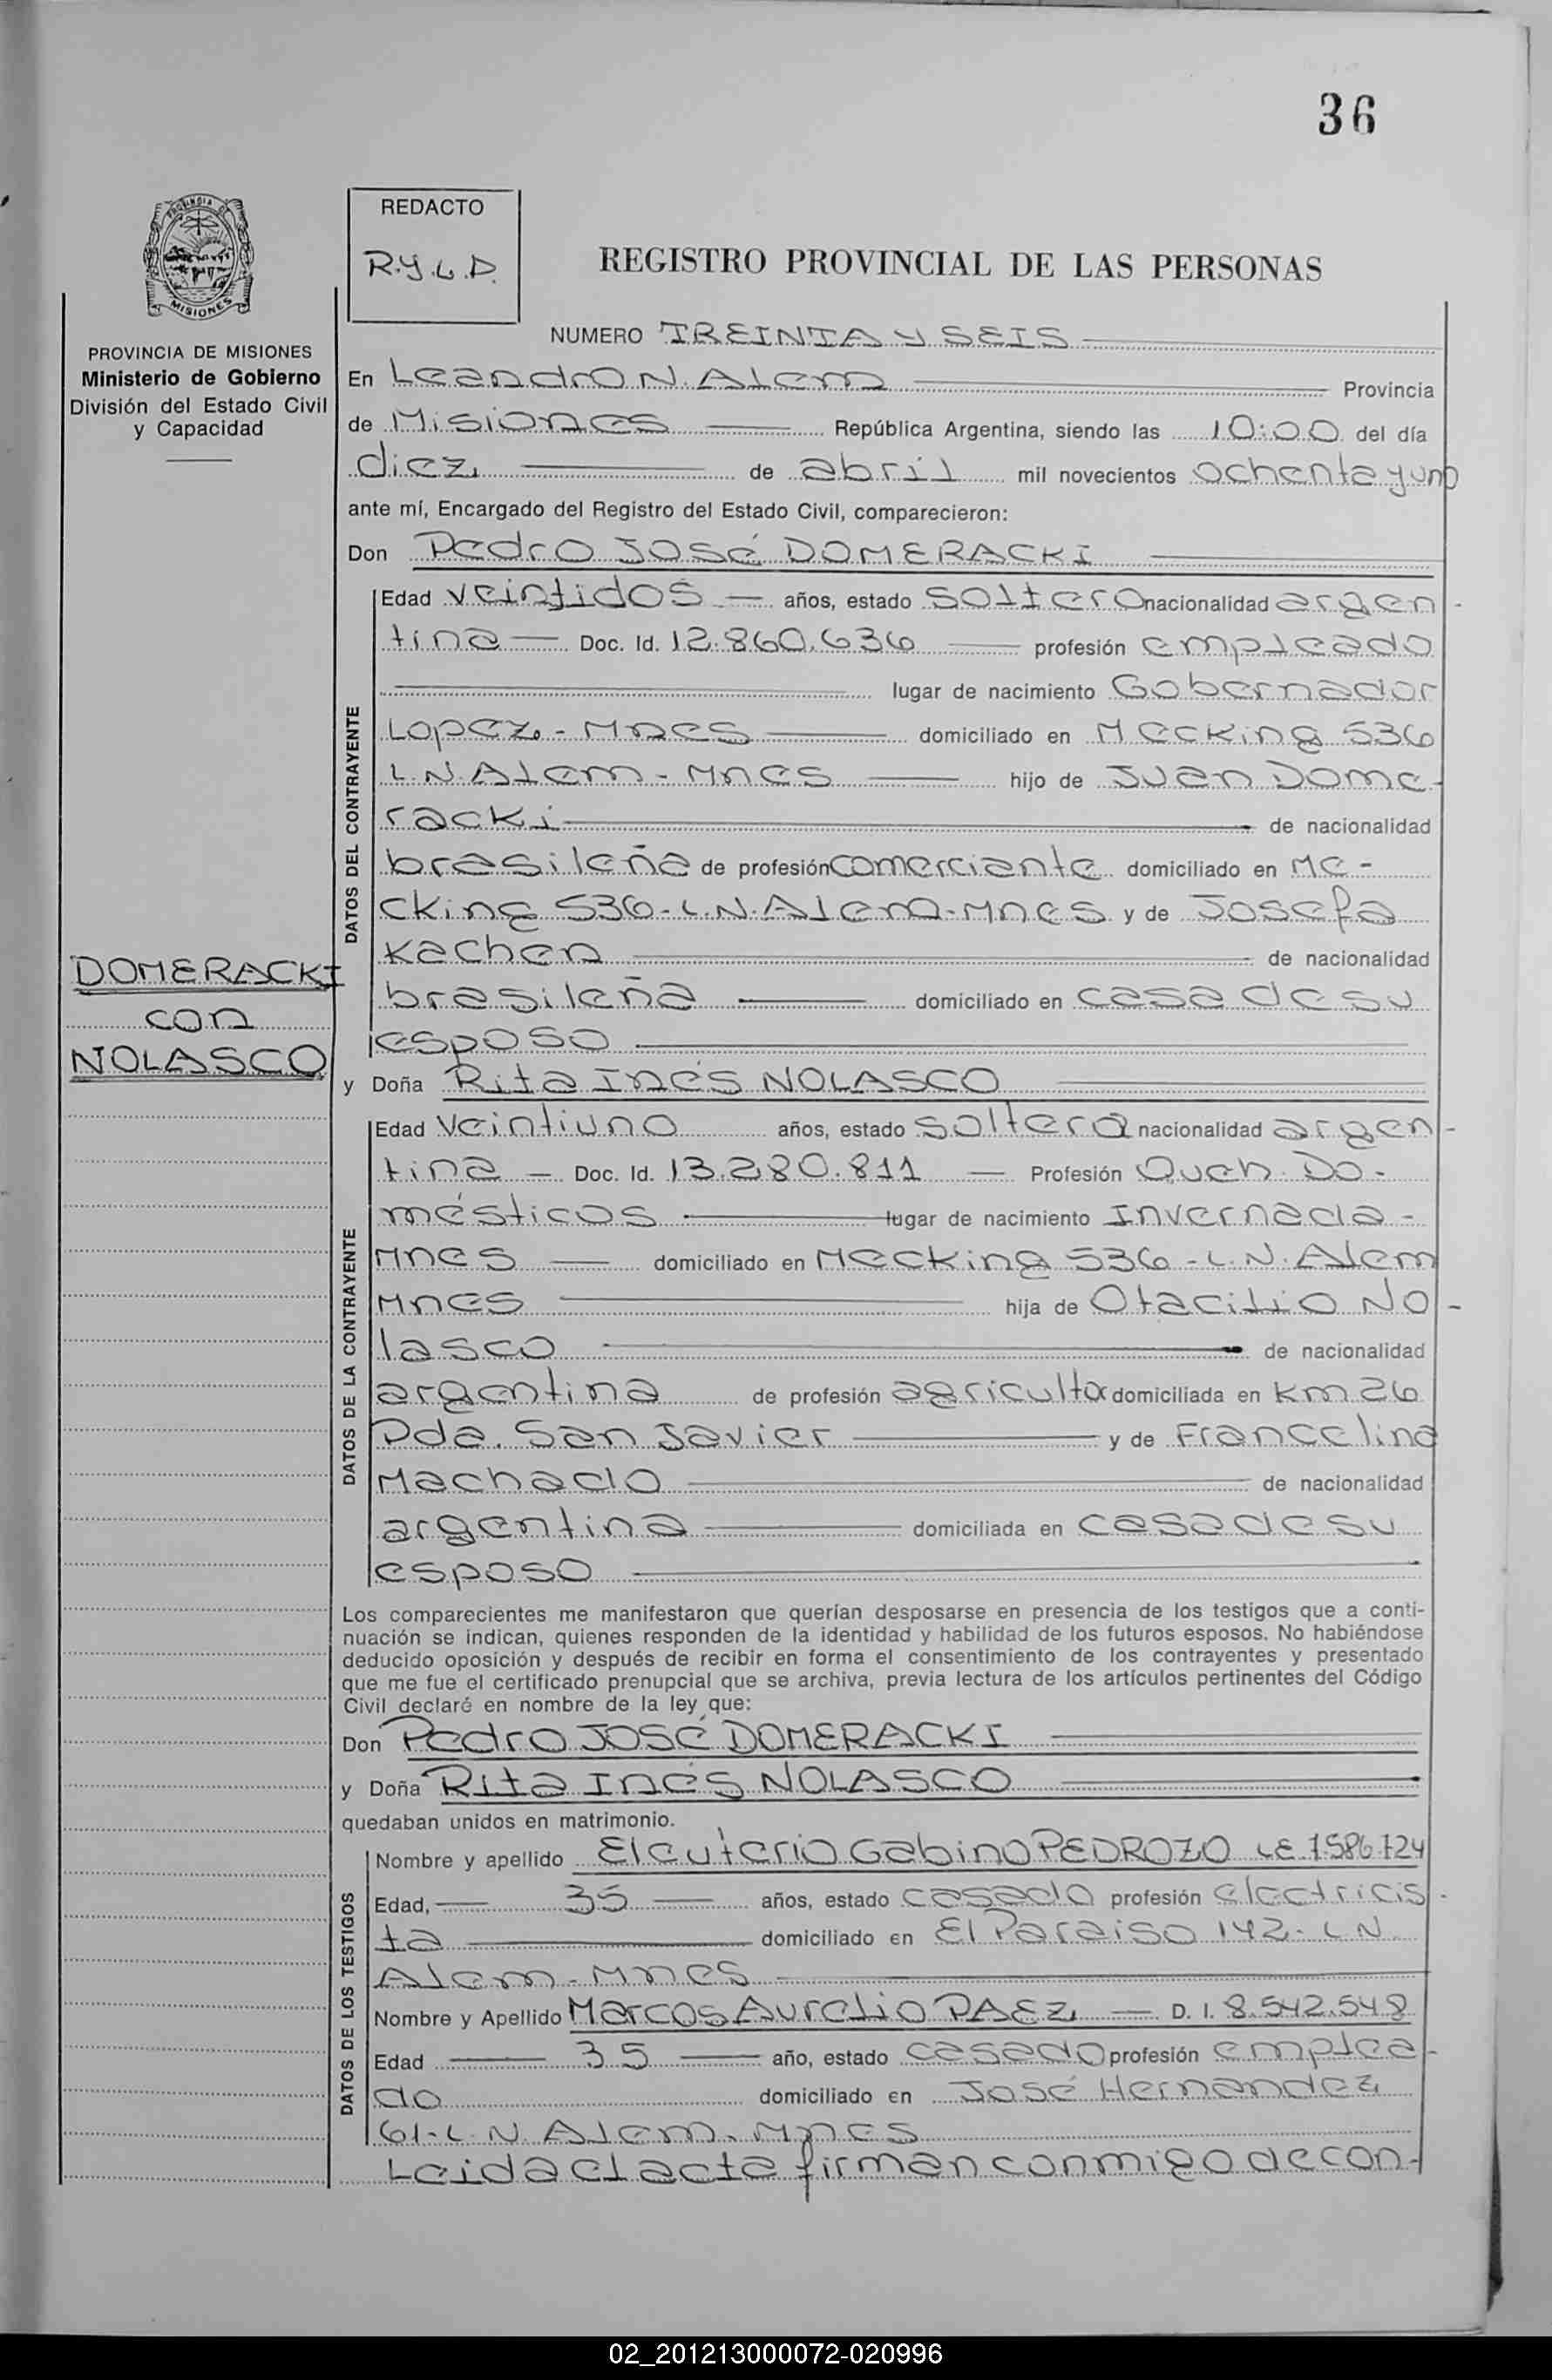 36
REDACTO
R.Y.L.D.
REGISTRO PROVINCIAL DE LAS PERSONAS
PROVINCIA DE MISIONES
Ministerio de Gobierno
División del Estado Civil
y Capacidad
DOMERACKI
con
NOLASCO
NUMERO TREINTA Y SEIS
En Leandro N. Alem Provincia
de Misiones República Argentina, siendo las 10:00 del día
diez de abril mil novecientos ochenta y uno
ante mí, Encargado del Registro del Estado Civil, comparecieron:
Don Pedro José DOMERACKI
DATOS DEL CONTRAYENTE
Edad veintidos años, estado soltero nacionalidad argen-
tina Doc. Id. 12.860.636 profesión empleado
lugar de nacimiento Gobernador
Lopez - Mnes domiciliado en Mecking 536
L.N. Alem - Mnes hijo de Juan Dome-
racki de nacionalidad
brasileña de profesión comerciante domiciliado en Me-
cking 536 - L.N. Alem - Mnes y de Josefa
Kachen de nacionalidad
brasileña domiciliado en casa de su
esposo
y Doña Rita Inés NOLASCO
DATOS DE LA CONTRAYENTE
Edad veintiuno años, estado soltera nacionalidad argen-
tina Doc. Id. 13.280.811 Profesión Queh. Do-
mésticos lugar de nacimiento Invernada -
Mnes domiciliado en Mecking 536 - L.N. Alem
Mnes hija de Otacilio No-
lasco de nacionalidad
argentina de profesión agricultor domiciliada en Km 26
Pda. San Javier y de Francelina
Machado de nacionalidad
argentina domiciliada en casa de su
esposo
Los comparecientes me manifestaron que querían desposarse en presencia de los testigos que a conti-
nuación se indican, quienes responden de la identidad y habilidad de los futuros esposos. No habiéndose
deducido oposición y después de recibir en forma el consentimiento de los contrayentes y presentado
que me fue el certificado prenupcial que se archiva, previa lectura de los artículos pertinentes del Código
Civil declaré en nombre de la ley que:
Don Pedro José DOMERACKI
y Doña Rita Inés NOLASCO
quedaban unidos en matrimonio.
DATOS DE LOS TESTIGOS
Nombre y apellido Eleuterio Gabino PEDROZO LE 7.586.724
Edad, 35 años, estado casado profesión electricis-
ta domiciliado en El Paraiso 142 - L.N.
Alem - Mnes
Nombre y Apellido Marcos Aurelio PAEZ D. I. 8.542.548
Edad 35 año, estado casado profesión emplea-
do domiciliado en José Hernandez
61 - L.N. Alem. Mnes
Leida el acta firman conmigo de con-
02_201213000072-020996